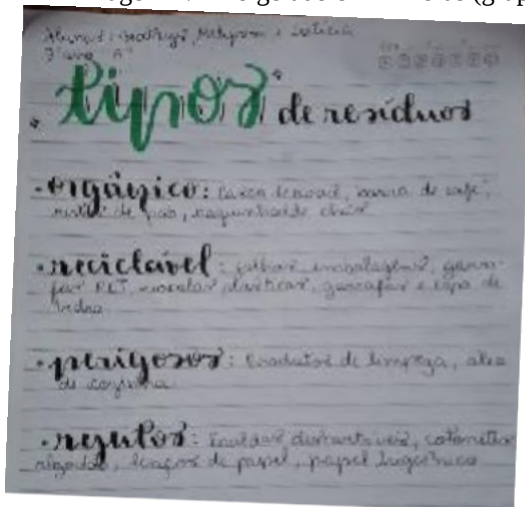 7º ano "A"
tipos de resíduos
• orgânico: casca de , borra de café,
de pão, de chás
• reciclável: embalagens, garra-
fas PET, sacolas plásticas, garrafas e copo de
vidro
• perigosos: Produtos de limpeza, óleo
de cozinha
• rejeitos: Fraldas descartáveis, cotonetes
algodão, lenços de papel, papel higiênico